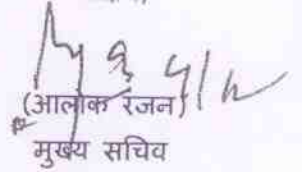 (आलोक रंजन)
मुख्य सचिव